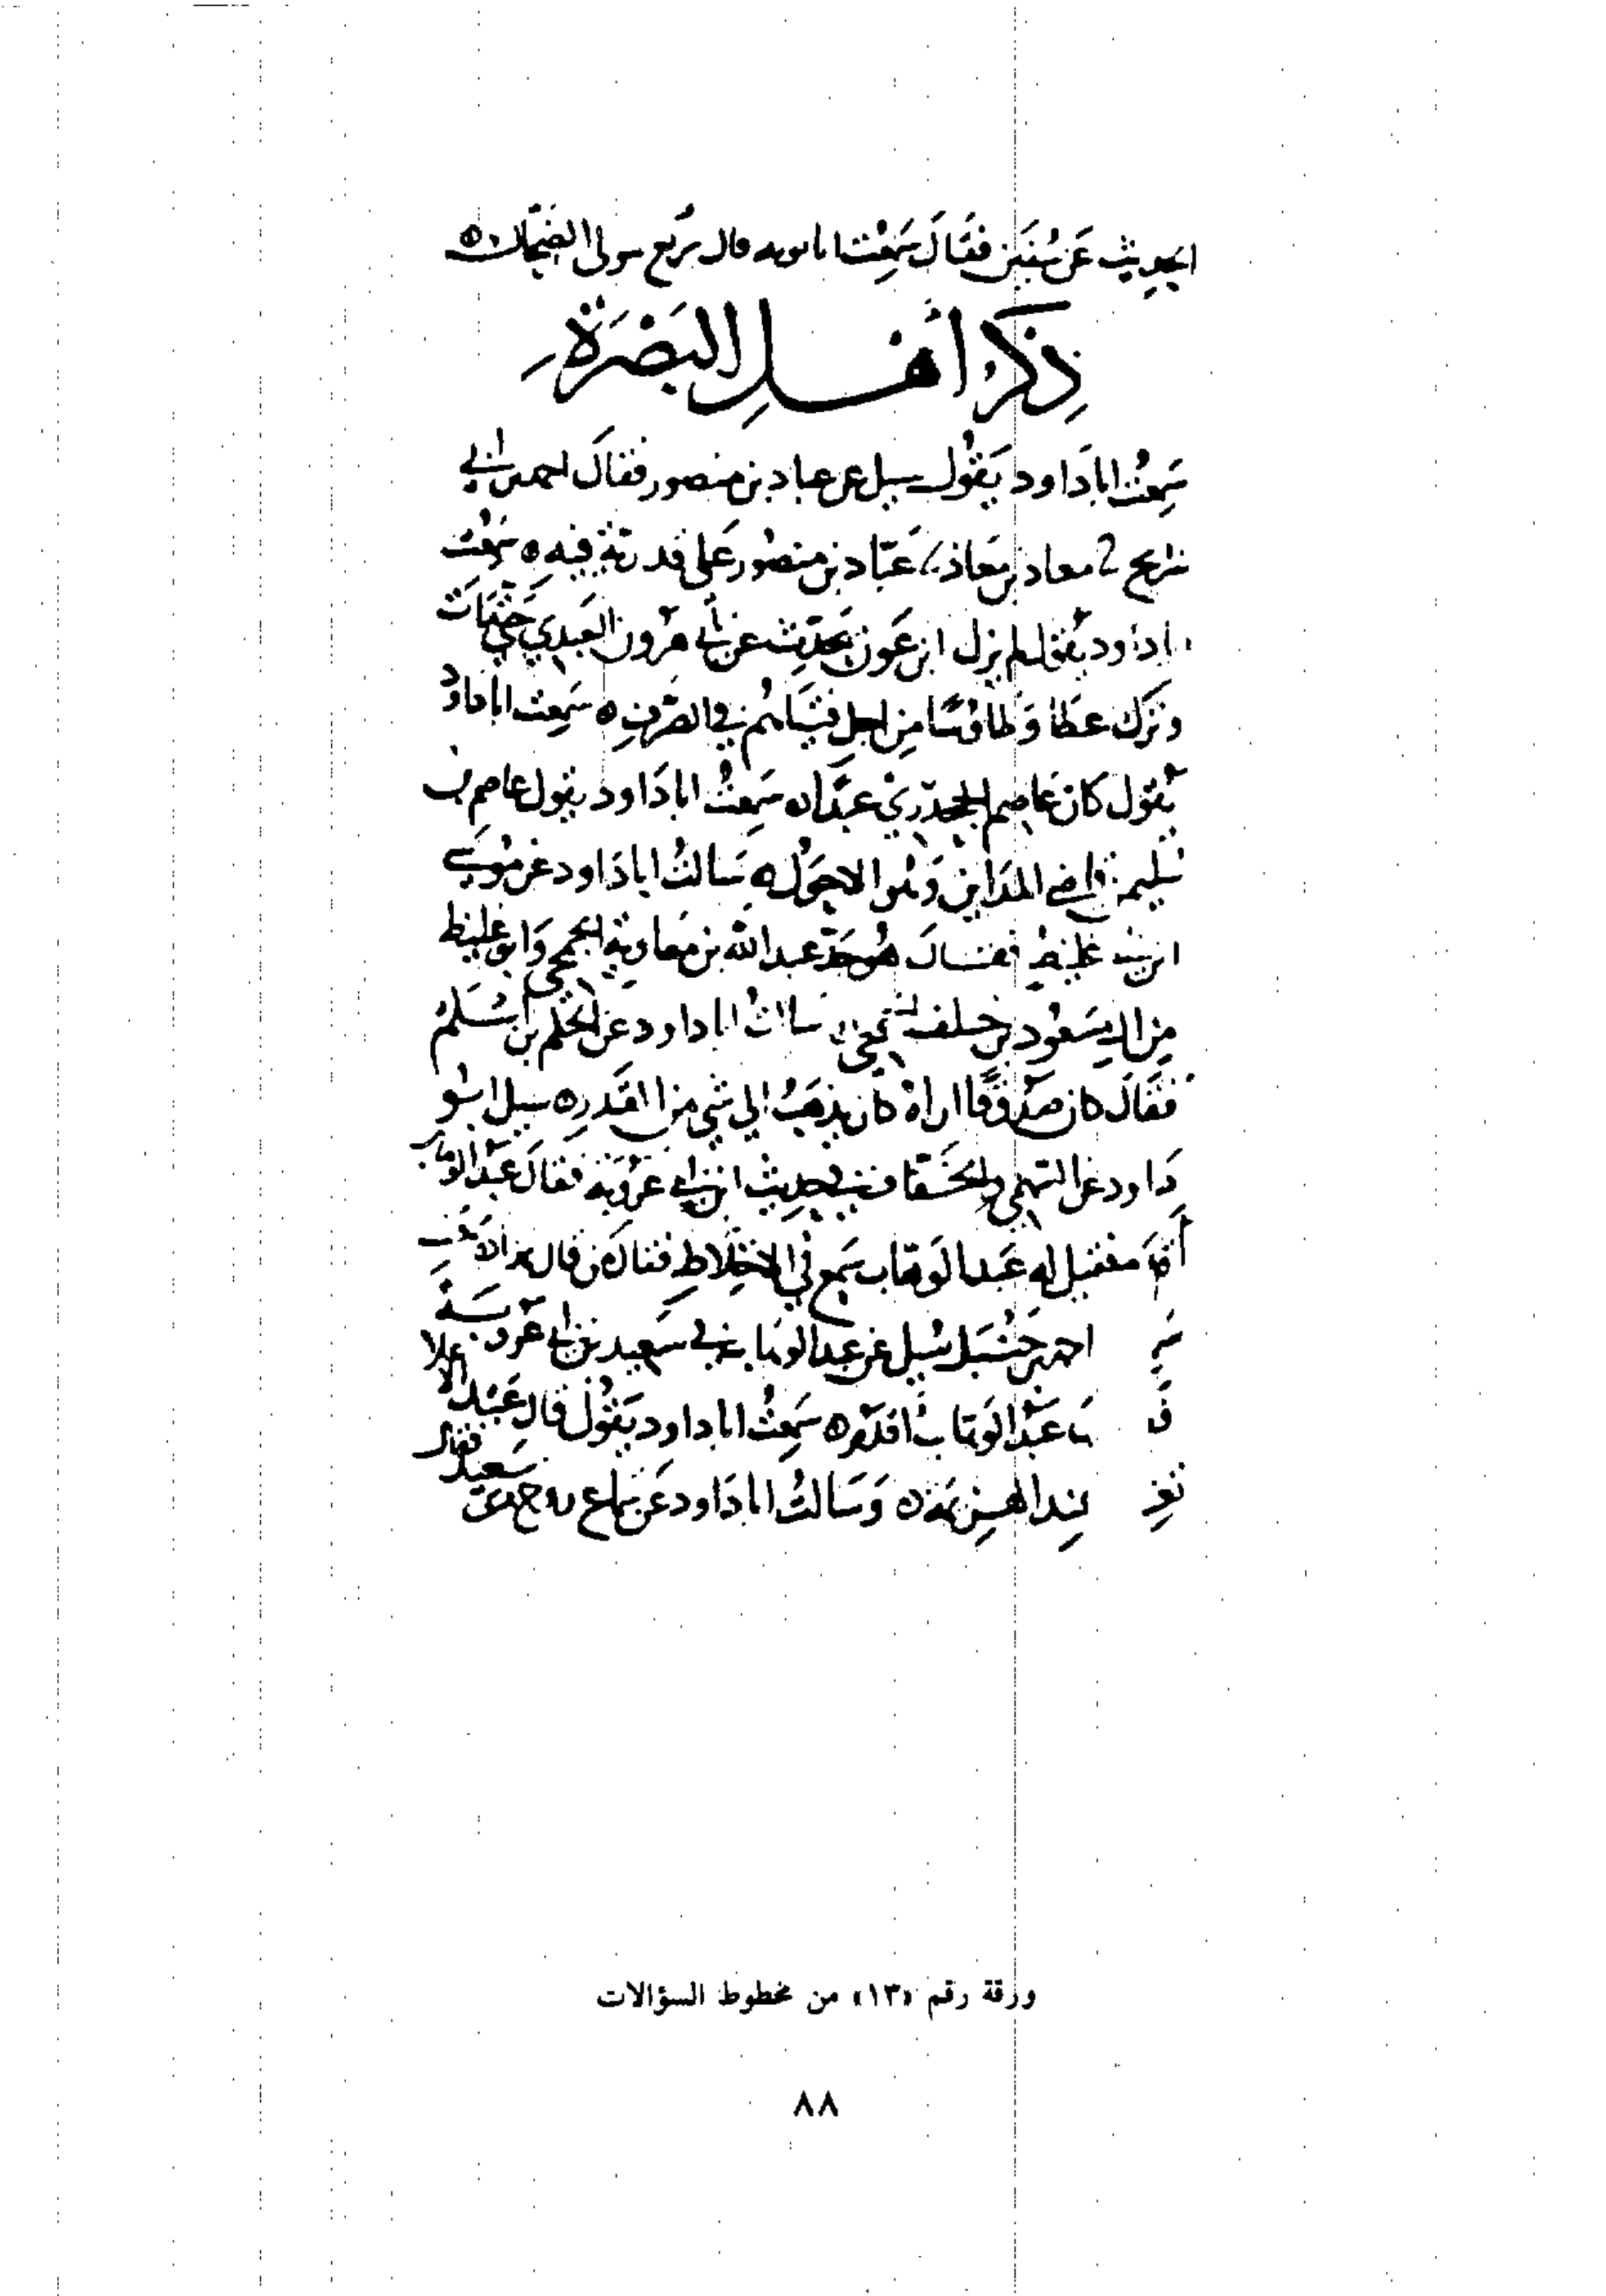 الحديث عن سفين فقال سمعت ابا توبه قال بزيع مولى الضحاك ه
ذكر أهل البصرة
سمعت ابا داود يقول سيل عن عباد بن منصور فقال احمد بن ابي
سريج معاد بن معاذ عباد بن منصور على قدرية فيه ه سمعت
ابا داود يقول لم يزل ابن عون يحدث عن ابي هرون العبدي حتي مات
وترك عطا وطاوسا من اجل فتياهم في الصرف ه سمعت ابا داود
يقول كان عاصم الجحدري عبدا ه سمعت ابا داود يقول عاصم بن
سليمن قاضي المداين وهو الاحول ه سالت ابا داود عن موسي
ابن غليظ فقال هو جد عبد الله بن معاوية الجمحي وابو غليظ
من ال مسعود بن خلف الجمحي سالت ابا داود عن الحكم بن اسلم
فقال كان صدوقا اراه كان يذهب الي شي من القدر ه سيل ابو
داود عن السهمي والخفاف في حديث ابن ابي عروبة فقال عبد الوهاب
أقدم فقيل له عبد الوهاب سمع في الاختلاط فقال من قال هذا
احمد بن حنبل سيل عن عبد الوهاب في سعيد بن ابي عروبة
عبد الوهاب أقدم ه سمعت ابا داود يقول قال عبد الاعلا
وسالت ابا داود عن سماع روح من سعيد فقال
ورقة رقم «١٣» من مخطوط السؤالات
٨٨